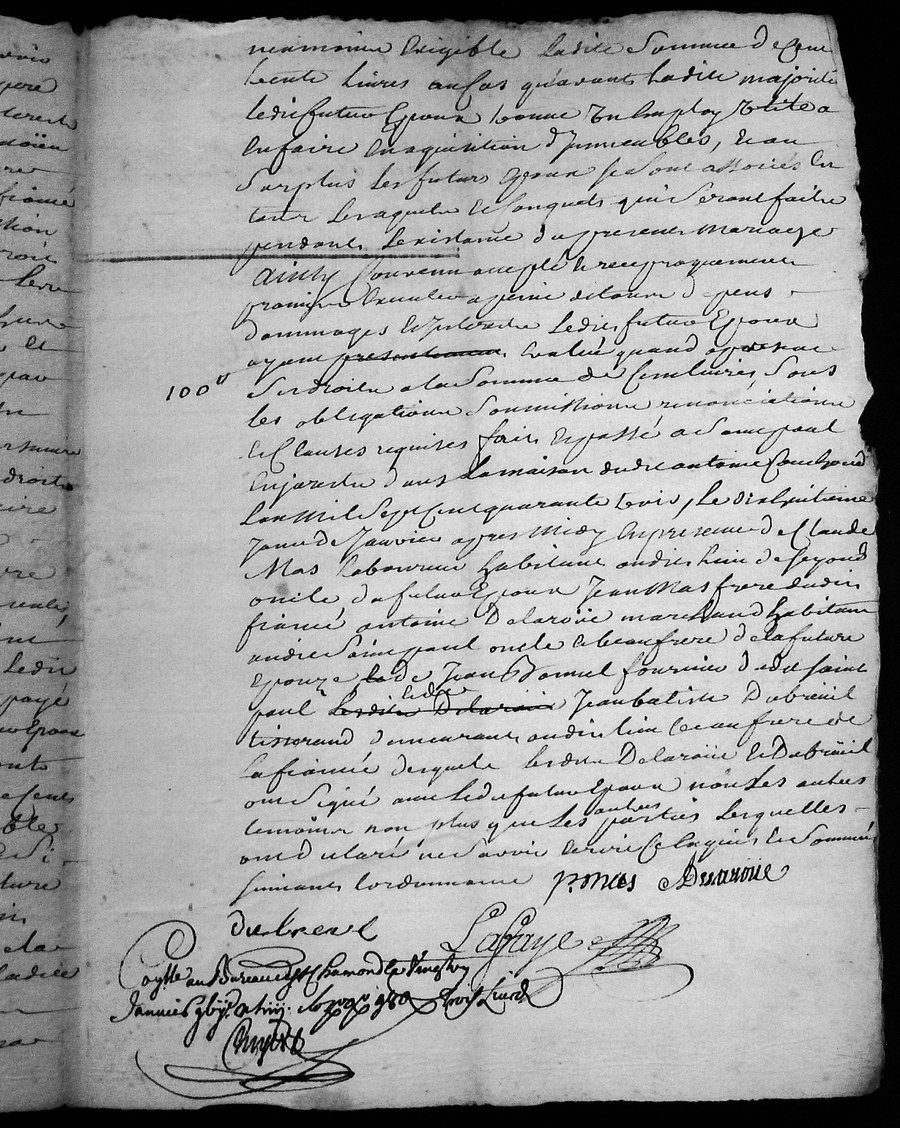 neamoins Exigible Ladite Somme de Cent
trente Livres au Cas qu'avant Ladite majorité
Ledit futur Epoux trouve Un Employ Utile a
En faire En aquisition d'Jmmeubles, Et au
Surplus Les futurs Epoux se sont associés En
tous Les aquets Et Conquets qui Seront faits
pendant Lexistance du present mariage
Ainsy Convenu accepté et reciproquement
promis Executer a peine de tous depens
dommages Et Jnterets Ledit futur Epoux
ayant presentement Evalué quand a present
100ll Ses droits a la Somme de Cent Livres, Sous
les obligations Soumissions renonciations
Et Clauses requises fait Et passé a Saint paul
En jarest dans La maison dudit antoine Couchoud
Lan Mil Sept Cent quarante trois, Le dixhuitieme
Jour de Janvier apres Midy En presence de Claude
Mas Laboureur habitant audit Lieu de
oncle du futur Epoux Jean Mas frere dudit
fiancé antoine Delaroüe marchand habitant
audit Saint paul oncle Et beaufrere de la future
Epouze La de Jean Bonnel fournier dudit Saint
paul Et de
Lesdits Delaroüe Jean batiste Dubreüil
tisserand demeurant audit Lieu beaufrere de
La fiancée desquels Lesdits Delaroüe Et Dubreüil
ont Signé avec Ledit futur Epoux non Les autres
temoins non plus que Les autres parties Lesquelles
ont declaré ne Savoir Ecrire De Ce Enquis Et Sommés
suivant Lordonnance p mas ADelaroüe
dubreul
Lafaye
au Bureau de St Chamond Le Vingt
Janvier trois Livres